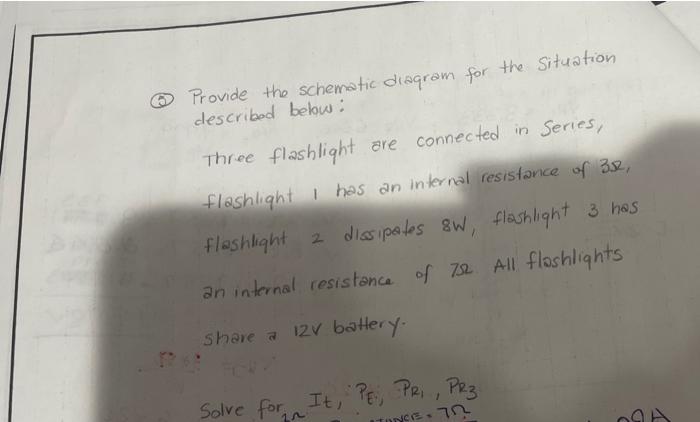 ⑤ Provide the schematic diagram for the Situation
described below:
Three flashlight are connected in Series,
flashlight 1 has an internal resistance of 3Ω,
flashlight 2 dissipates 8W, flashlight 3 has
an internal resistance of 7Ω All flashlights
share a 12V battery.
Solve for It, PE, PR1, PR3
= 7Ω